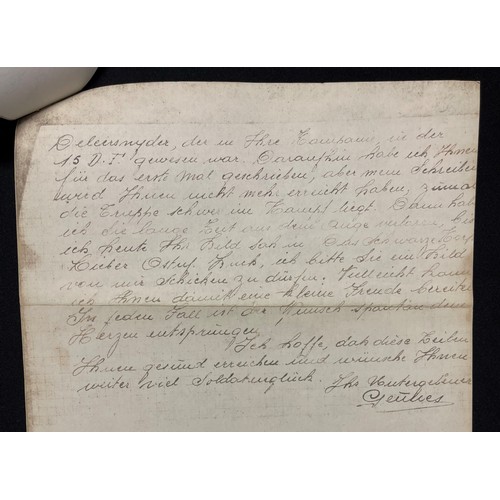 Deleersnyder, der in Ihre Kompanie, in der
15 V.F. gewesen war. Daraufhin habe ich Ihnen
für das erste Mal geschrieben, aber mein Schreiben
wird Ihnen nicht mehr erreicht haben, zumal
die Truppe schwer im Kampf liegt. Dann habe
ich Sie lange Zeit aus dem Auge verloren, bis
ich heute Ihr Bild sah in Das Schwarze Korps
Lieber Ostuf. ich bitte Sie ein Bild
von mir schicken zu dürfen. Vielleicht kann
ich Ihnen damit eine kleine Freude bereiten
In jeden Fall ist der Wunsch spontan dem
Herzen entsprungen,
Ich hoffe, dass diese Zeilen
Ihnen gesund erreichen und wünsche Ihnen
weiter viel Soldatenglück. Ihr Untergebener